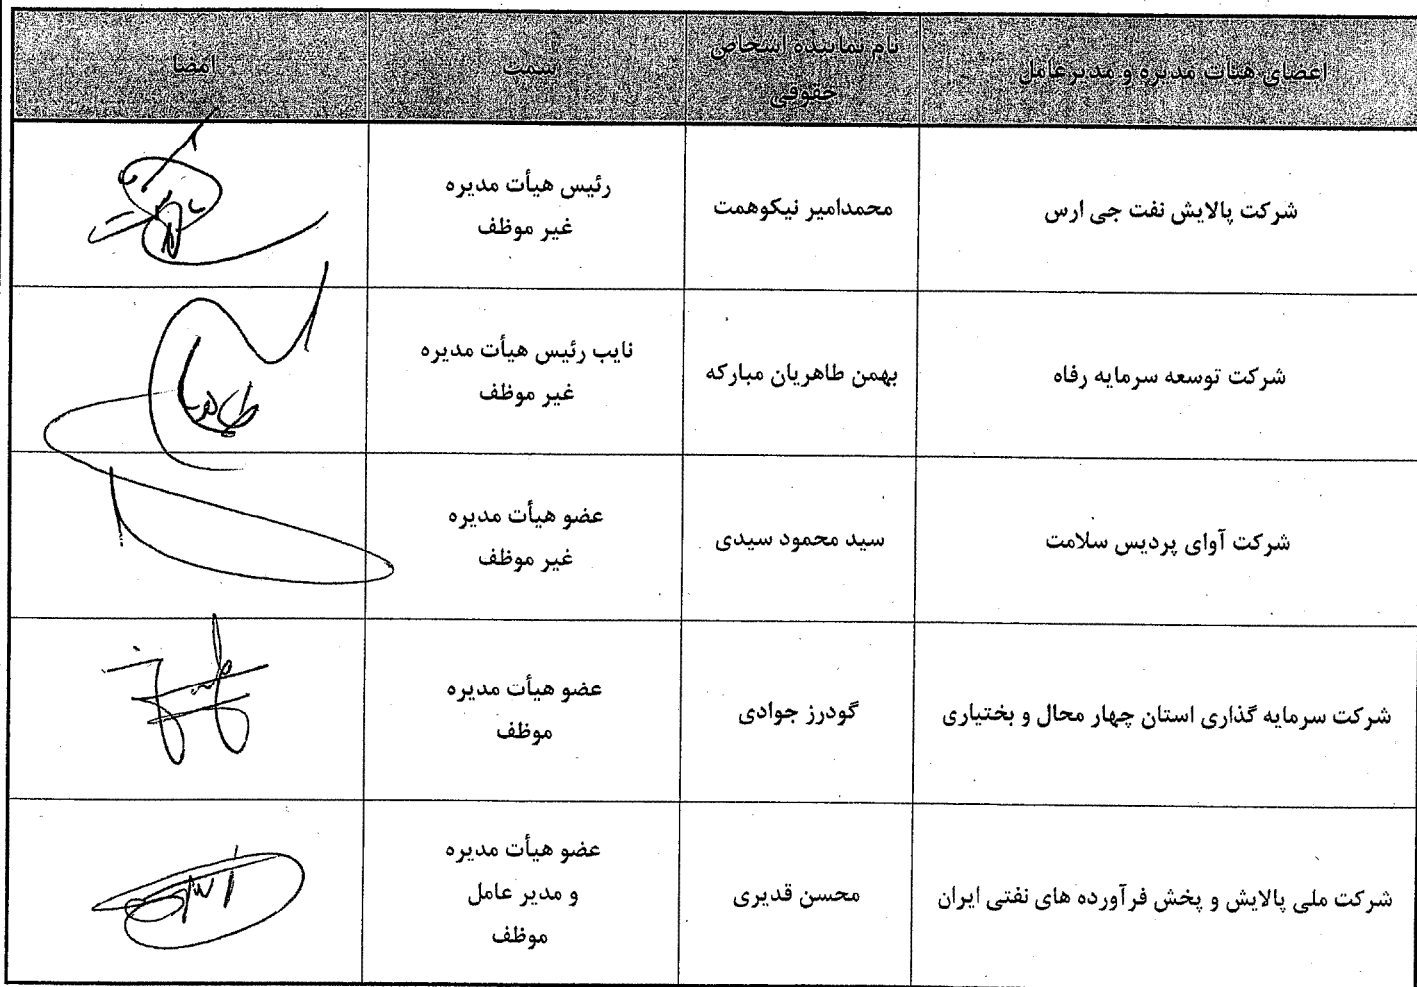 اعضای هیئات مدیره و مدیرعامل
نام نماینده اشخاص
حقوقی
سمت
امضا
شرکت پالایش نفت جی ارس
محمدامیر نیکوهمت
رئیس هیأت مدیره
غیر موظف
شرکت توسعه سرمایه رفاه
بهمن طاهریان مبارکه
نایب رئیس هیأت مدیره
غیر موظف
شرکت آوای پردیس سلامت
سید محمود سیدی
عضو هیأت مدیره
غیر موظف
شرکت سرمایه گذاری استان چهار محال و بختیاری
گودرز جوادی
عضو هیأت مدیره
موظف
شرکت ملی پالایش و پخش فرآورده های نفتی ایران
محسن قدیری
عضو هیأت مدیره
و مدیر عامل
موظف